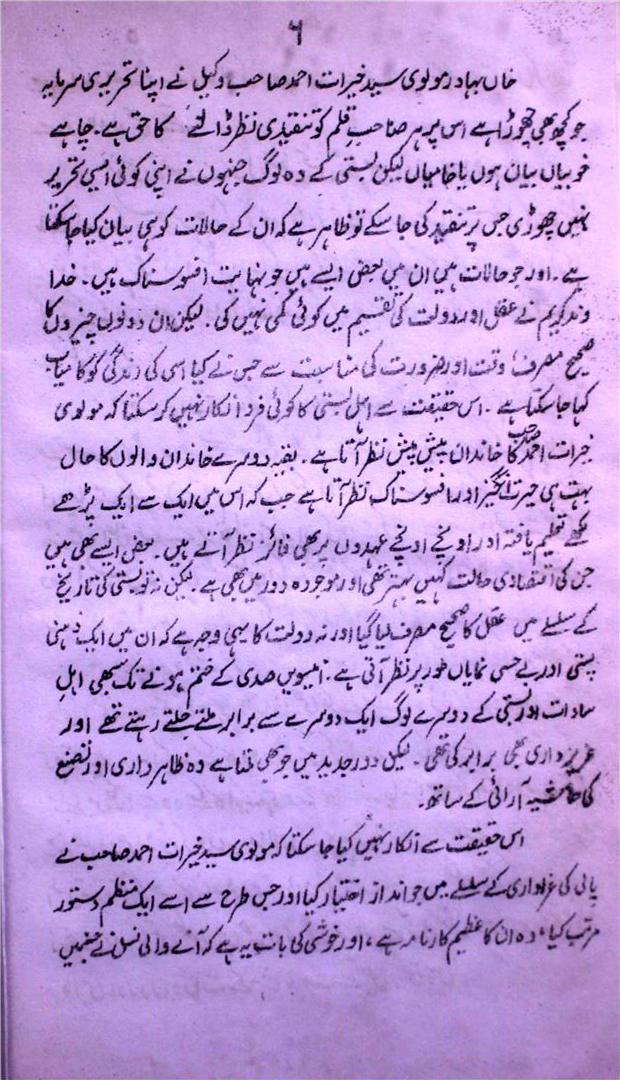 ۶
خاں بہادر مولوی سید خیرات احمد صاحب وکیل نے اپنا تحریری سرمایہ
جو کچھ بھی چھوڑا ہے اس پر ہر صاحب قلم کو تنقیدی نظر ڈالنے کا حق ہے۔ چاہے
خوبیاں بیان ہوں یا خامیاں لیکن بستی کے وہ لوگ جنہوں نے اپنی کوئی ایسی تحریر
نہیں چھوڑی جس پر تنقید کی جا سکے تو ظاہر ہے کہ ان کے حالات کو ہی بیان کیا جا سکتا
ہے۔ اور جو حالات ہیں ان میں بعض ایسے ہیں جو نہایت افسوسناک ہیں۔ خدا
وند کریم نے عقل اور دولت کی تقسیم میں کوئی کمی نہیں کی۔ لیکن ان دونوں چیزوں کا
صحیح مصرف وقت اور ضرورت کی مناسبت سے جس نے کیا اسی کی زندگی کو کامیاب
کہا جا سکتا ہے۔ اس حقیقت سے اہل بستی کا کوئی فرد انکار نہیں کر سکتا کہ مولوی
خیرات احمد صاحب کا خاندان پیش پیش نظر آتا ہے۔ بقیہ دوسرے خاندان والوں کا حال
بہت ہی حیرت انگیز اور افسوسناک نظر آتا ہے جب کہ اس میں ایک سے ایک پڑھے
لکھے تعلیم یافتہ اور اونچے اونچے عہدوں پر بھی فائز نظر آتے ہیں۔ بعض ایسے بھی ہیں
جن کی اقتصادی حالت کہیں بہتر تھی اور موجودہ دور میں بھی ہے۔ لیکن نہ تو بستی کی تاریخ
کے سلسلے میں عقل کا صحیح مصرف لیا گیا اور نہ دولت کا یہی وجہ ہے کہ ان میں ایک ذہنی
پستی اور بے حسی نمایاں طور پر نظر آتی ہے۔ انیسویں صدی کے ختم ہونے تک سبھی اہلِ
سادات اور بستی کے دوسرے لوگ ایک دوسرے سے برابر ملتے جلتے رہتے تھے اور
عزیزداری بھی برابر کی تھی۔ لیکن دور جدید میں جو بھی ملتا ہے وہ ظاہر داری اور تصنع
کی حاشیہ آرائی کے ساتھ۔
اس حقیقت سے انکار نہیں کیا جا سکتا کہ مولوی سید خیرات احمد صاحب نے
پالی کی عزاداری کے سلسلے میں جو انداز اختیار کیا اور جس طرح سے اسے ایک منظم دستور
مرتب کیا، وہ ان کا عظیم کارنامہ ہے، اور خوشی کی بات یہ ہے کہ آنے والی نسل نے جنہیں